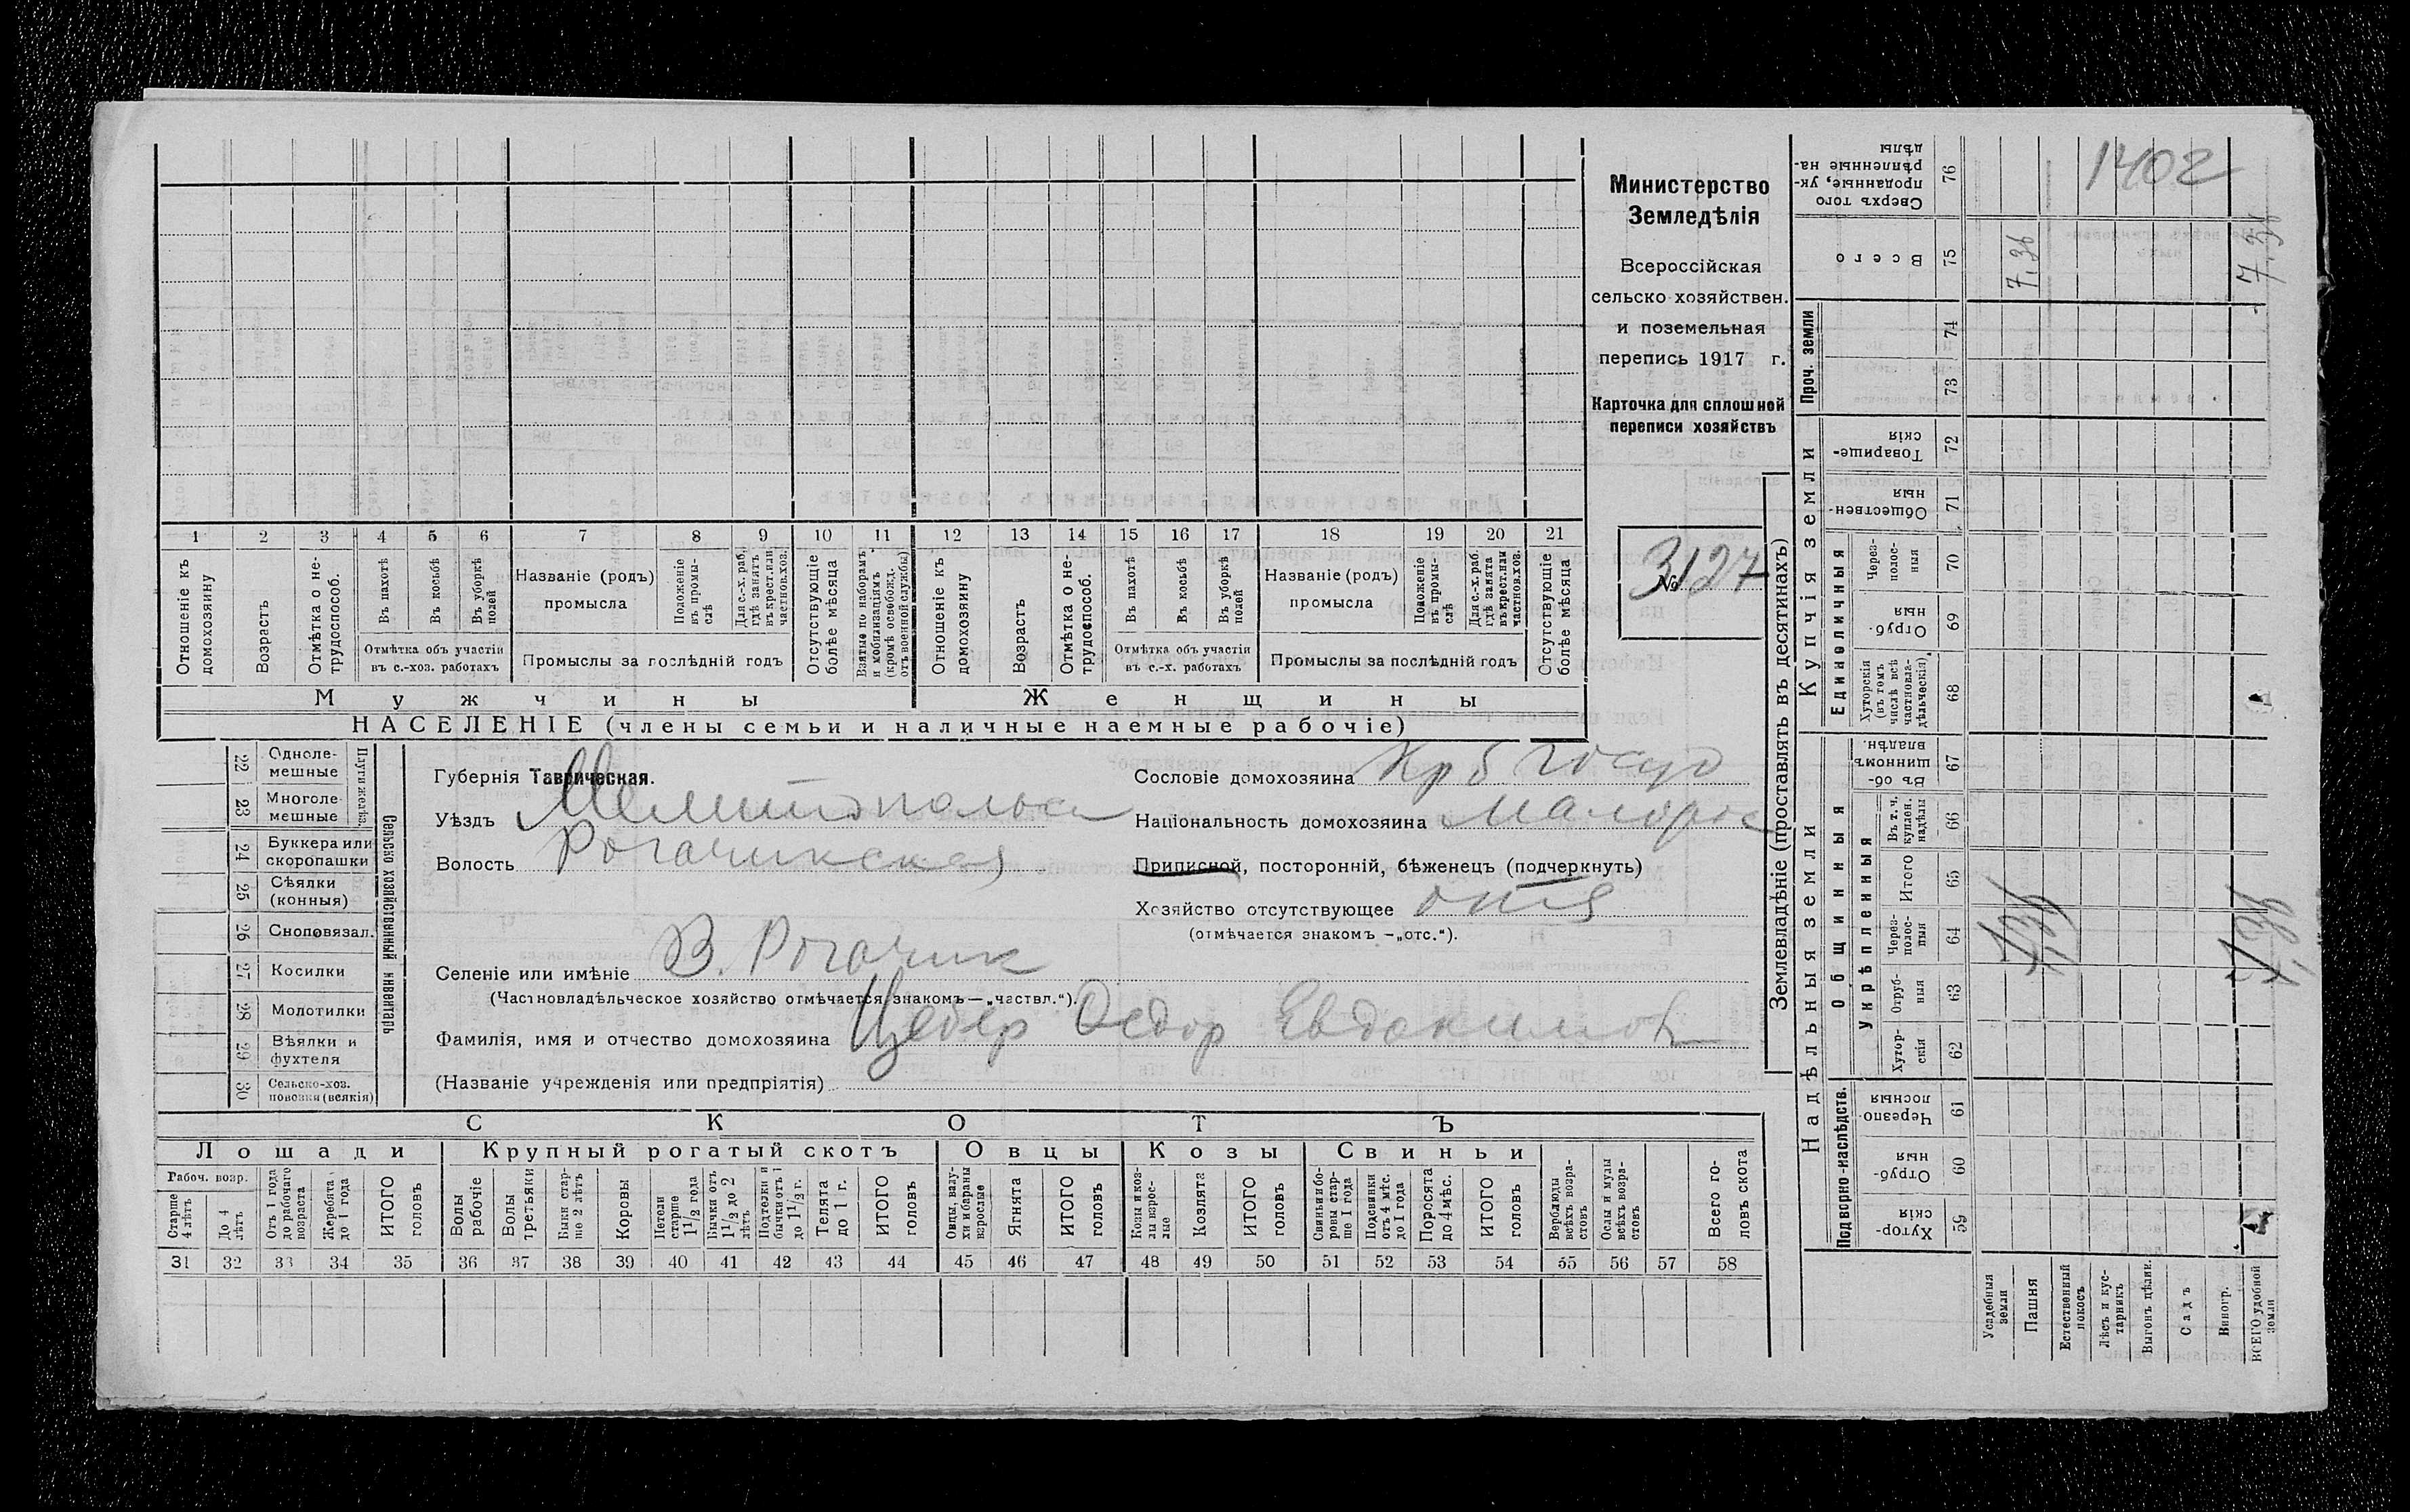 Министерство
Земледѣлія
Всероссійская
сельско хозяйствен.
и поземельная
перепись 1917 г.
Карточка для сплошной
переписи хозяйствъ
№ 3127
1 2 3 4 5 6 7 8 9 10 11 12 13 14 15 16 17 18 19 20 21
Отношеніе къ домохозяину
Возрастъ
Отмѣтка о не-трудоспособ.
Въ пахотѣ
Въ косьбѣ
Въ уборкѣ полей
Отмѣтка объ участіи въ с.-хоз. работахъ
Названіе (родъ) промысла
Положеніе въ промы-слѣ
Для с.-х. раб. гдѣ занятъ въ крест. или частнов. хоз.
Промыслы за послѣдній годъ
Отсутствующіе болѣе мѣсяца
Взятые по наборамъ и мобилизаціямъ (кромѣ освобожд. отъ военной службы)
Отношеніе къ домохозяину
Возрастъ
Отмѣтка о не-трудоспособ.
Въ пахотѣ
Въ косьбѣ
Въ уборкѣ полей
Отмѣтка объ участіи въ с.-х. работахъ
Названіе (родъ) промысла
Положеніе въ промы-слѣ
Для с.-х. раб. гдѣ занята въ крест. или частнов. хоз.
Промыслы за послѣдній годъ
Отсутствующіе болѣе мѣсяца
Мужчины Женщины
НАСЕЛЕНІЕ (члены семьи и наличные наемные рабочіе)
22 Одноле-мешные
23 Многоле-мешные
Плуги желѣз.
24 Буккера или скоропашки
25 Сѣялки (конныя)
26 Сноповязал.
27 Косилки
28 Молотилки
29 Вѣялки и фухтеля
30 Сельско-хоз. повозки (всякія)
Сельско хозяйственный инвентарь
Губернія Таврическая.
Уѣздъ Мелитопольск
Волость Рогачикская
Селеніе или имѣніе В. Рогачик
(Частновладѣльческое хозяйство отмѣчается знакомъ—„частвл.“).
Фамилія, имя и отчество домохозяина Цебер Федор Евдокимов
(Названіе учрежденія или предпріятія)
Сословіе домохозяина Кр б госуд
Національность домохозяина малорос
Приписной, посторонній, бѣженецъ (подчеркнуть)
Хозяйство отсутствующее
(отмѣчается знакомъ —„отс.“).
СКОТЪ
Лошади Крупный рогатый скотъ Овцы Козы Свиньи
Рабоч. возр.
Старше 4 лѣтъ
До 4 лѣтъ
Отъ 1 года до рабочаго возраста
Жеребята до 1 года
ИТОГО головъ
Волы рабочіе
Волы третьяки
Быки стар-ше 2 лѣтъ
Коровы
Нетели старше 1 1/2 года
Бычки отъ 1 1/2 до 2 лѣтъ
Подтелки и бычки отъ 1 до 1 1/2 г.
Телята до 1 г.
ИТОГО головъ
Овцы, валу-хи и бараны взрослые
Ягнята
ИТОГО головъ
Козы и коз-лы взрос-лые
Козлята
ИТОГО головъ
Свиньи и бо-ровы стар-ше 1 года
Подсвинки отъ 4 мѣс. до 1 года
Поросята до 4 мѣс.
ИТОГО головъ
Верблюды всѣхъ возра-стовъ
Ослы и мулы всѣхъ возра-стовъ
Всего го-ловъ скота
31 32 33 34 35 36 37 38 39 40 41 42 43 44 45 46 47 48 49 50 51 52 53 54 55 56 57 58
Землевладѣніе (проставлять въ десятинахъ)
Надѣльныя земли Купчія земли Проч. земли
Подворно-наслѣдств. Общинныя Единоличныя
Укрѣпленныя
Хутор-скія 59
Отруб-ныя 60
Черезпо-лосныя 61
Хутор-скія 62
Отруб-ныя 63
Через-полос-ныя 64
Итого 65
Въ т. ч. куплен. надѣлы 66
Въ об-щинномъ владѣн. 67
Хуторскія (въ томъ числѣ всѣ частновла-дѣльческія) 68
Отруб-ныя 69
Через-полос-ныя 70
Обществен-ныя 71
Товарище-скія 72
73
74
Всего 75
Сверхъ того проданные, ук-рѣпленные на-дѣлы 76
Усадебныя земли
Пашня
Естественный покосъ
Лѣсъ и кус-тарникъ
Выгонъ цѣлин.
Садъ
Виногр.
ВСЕГО удобной земли
1402
7,36
7,36
7,36
7,36